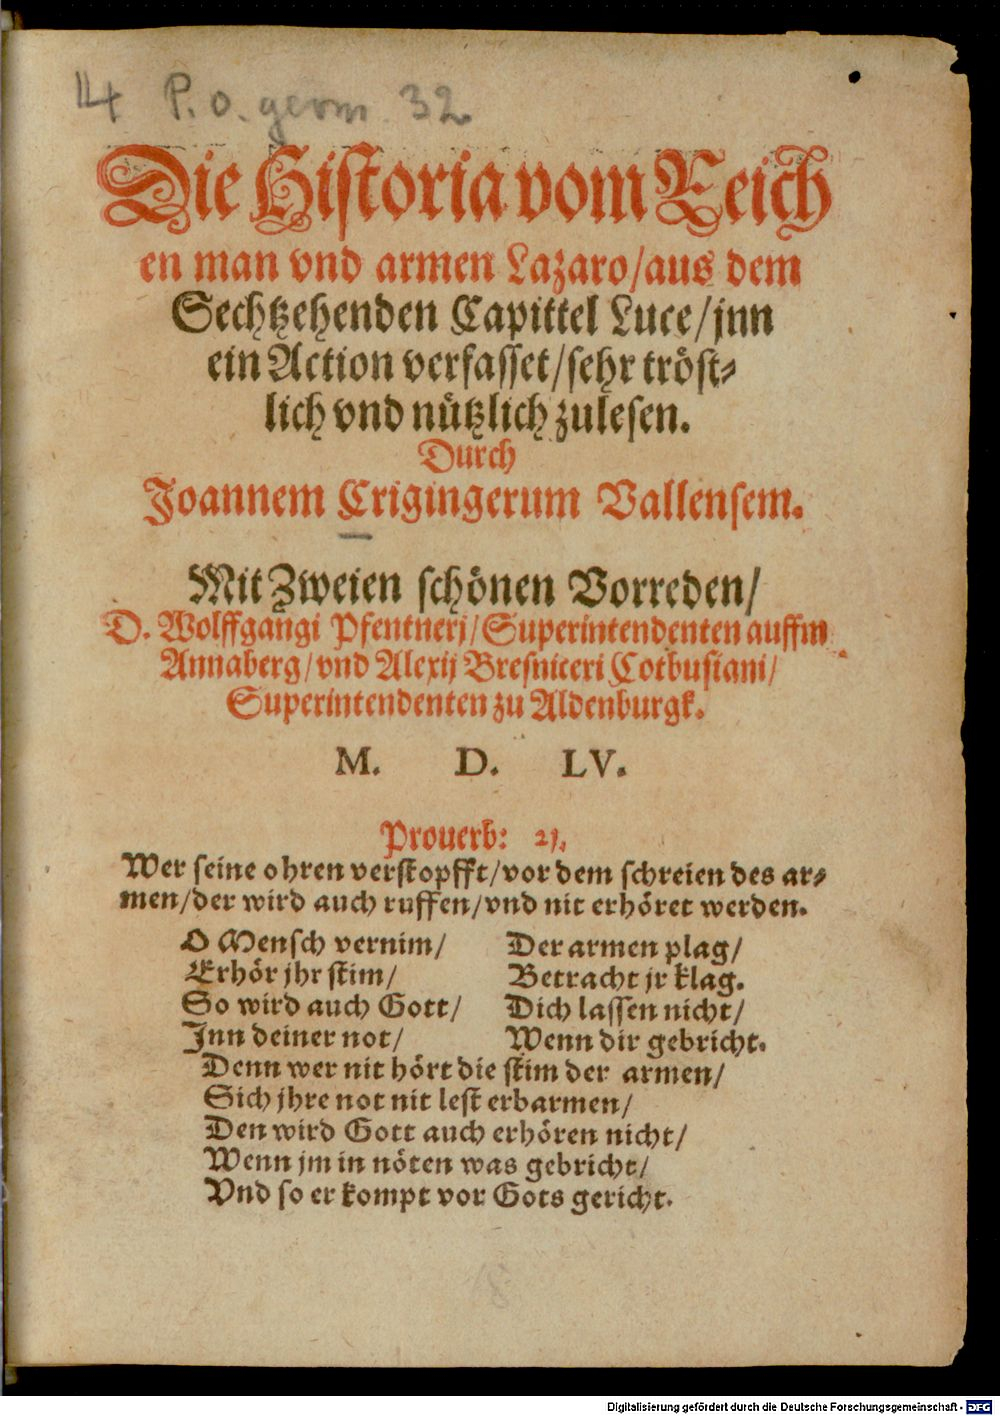 4 P. o. germ. 32
Die Historia vom Reich
en man vnd armen Lazaro/aus dem
Sechtzehenden Capittel Luce/jnn
ein Action verfasset/sehr tröst⸗
lich vnd nützlich zulesen.
Durch
Joannem Crigingerum Vallensem.
Mit Zweien schönen Vorreden/
D. Wolffgangi Pfentneri/Superintendenten auffm
Annaberg/vnd Alexij Bresniceri Cotbusiani/
Superintendenten zu Aldenburgk.
M. D. LV.
Prouerb: 21.
Wer seine ohren verstopfft/vor dem schreien des ar⸗
men/der wird auch ruffen/vnd nit erhöret werden.
O Mensch vernim/
Erhör jhr stim/
So wird auch Gott/
Inn deiner not/
Der armen plag/
Betracht jr klag.
Dich lassen nicht/
Wenn dir gebricht.
Denn wer nit hört die stim der armen/
Sich jhre not nit lest erbarmen/
Den wird Gott auch erhören nicht/
Wenn jm in nöten was gebricht/
Vnd so er kompt vor Gots gericht.
Digitalisierung gefördert durch die Deutsche Forschungsgemeinschaft - DFG